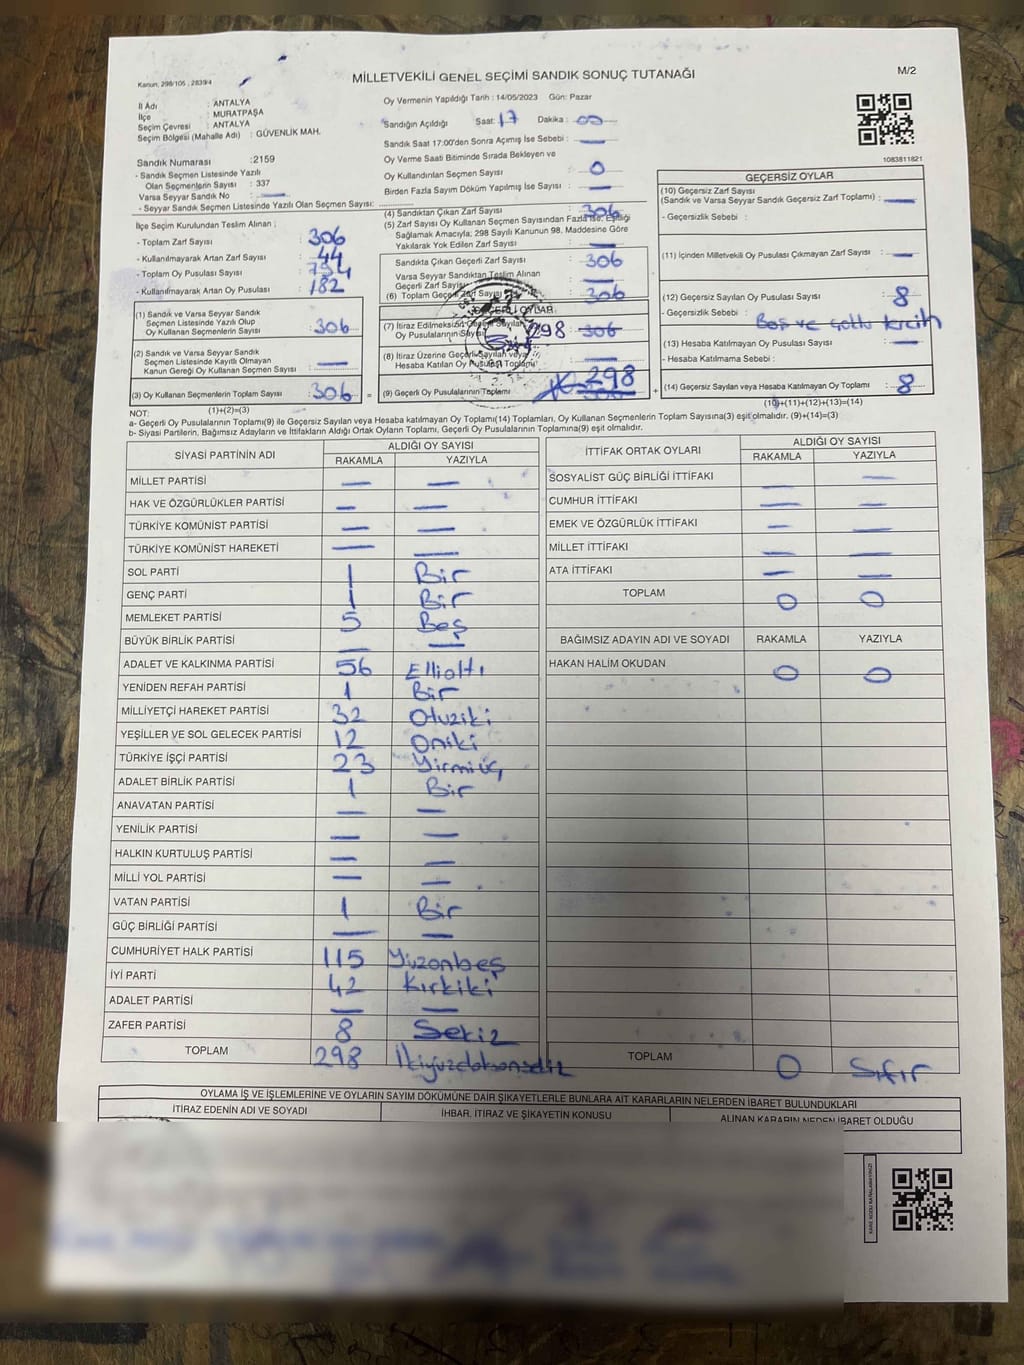 Kanun, 298/105 , 2839/4
MİLLETVEKİLİ GENEL SEÇİMİ SANDIK SONUÇ TUTANAĞI
M/2
İl Adı : ANTALYA
İlçe : MURATPAŞA
Seçim Çevresi : ANTALYA
Seçim Bölgesi (Mahalle Adı) : GÜVENLİK MAH.
Sandık Numarası :2159
- Sandık Seçmen Listesinde Yazılı
Olan Seçmenlerin Sayısı : 337
Varsa Seyyar Sandık No : —
- Seyyar Sandık Seçmen Listesinde Yazılı Olan Seçmen Sayısı: ..............
Oy Vermenin Yapıldığı Tarih : 14/05/2023 Gün: Pazar
Sandığın Açıldığı Saat: 17 Dakika : 00
Sandık Saat 17:00'den Sonra Açımış İse Sebebi : —
Oy Verme Saati Bitiminde Sırada Bekleyen ve
Oy Kullandırılan Seçmen Sayısı : 0
Birden Fazla Sayım Döküm Yapılmış İse Sayısı : —
1083811821
İlçe Seçim Kurulundan Teslim Alınan ;
- Toplam Zarf Sayısı : 306
- Kullanılmayarak Artan Zarf Sayısı : 44
- Toplam Oy Pusulası Sayısı
- Kullanılmayarak Artan Oy Pusulası : 182
(1) Sandık ve Varsa Seyyar Sandık
Seçmen Listesinde Yazılı Olup
Oy Kullanan Seçmenlerin Sayısı : 306
(2) Sandık ve Varsa Seyyar Sandık
Seçmen Listesinde Kayıtlı Olmayan
Kanun Gereği Oy Kullanan Seçmen Sayısı : —
(3) Oy Kullanan Seçmenlerin Toplam Sayısı : 306 =
(1)+(2)=(3)
(4) Sandıktan Çıkan Zarf Sayısı : 306
(5) Zarf Sayısı Oy Kullanan Seçmen Sayısından Fazla İse, Eşitliği
Sağlamak Amacıyla; 298 Sayılı Kanunun 98. Maddesine Göre
Yakılarak Yok Edilen Zarf Sayısı : —
Sandıkta Çıkan Geçerli Zarf Sayısı : 306
Varsa Seyyar Sandıktan Teslim Alınan
Geçerli Zarf Sayısı : —
(6) Toplam Geçerli Zarf Sayısı : 306
GEÇERLİ OYLAR
(7) İtiraz Edilmeksizin Geçerli Sayılan
Oy Pusulalarının Sayısı 298 306
(8) İtiraz Üzerine Geçerli Sayılan veya
Hesaba Katılan Oy Pusulası Toplamı : —
(9) Geçerli Oy Pusulalarının Toplamı 298 +
GEÇERSİZ OYLAR
(10) Geçersiz Zarf Sayısı
(Sandık ve Varsa Seyyar Sandık Geçersiz Zarf Toplamı) : —
- Geçersizlik Sebebi :
(11) İçinden Milletvekili Oy Pusulası Çıkmayan Zarf Sayısı : —
(12) Geçersiz Sayılan Oy Pusulası Sayısı : 8
- Geçersizlik Sebebi : Boş ve
(13) Hesaba Katılmayan Oy Pusulası Sayısı : —
- Hesaba Katılmama Sebebi :
(14) Geçersiz Sayılan veya Hesaba Katılmayan Oy Toplamı : 8
(10)+(11)+(12)+(13)=(14)
NOT:
a- Geçerli Oy Pusulalarının Toplamı(9) ile Geçersiz Sayılan veya Hesaba katılmayan Oy Toplamı(14) Toplamları, Oy Kullanan Seçmenlerin Toplam Sayısına(3) eşit olmalıdır. (9)+(14)=(3)
b- Siyasi Partilerin, Bağımsız Adayların ve İttifakların Aldığı Ortak Oyların Toplamı, Geçerli Oy Pusulalarının Toplamına(9) eşit olmalıdır.
SİYASİ PARTİNİN ADI ALDIĞI OY SAYISI
RAKAMLA YAZIYLA
MİLLET PARTİSİ — —
HAK VE ÖZGÜRLÜKLER PARTİSİ — —
TÜRKİYE KOMÜNİST PARTİSİ — —
TÜRKİYE KOMÜNİST HAREKETİ — —
SOL PARTİ 1 Bir
GENÇ PARTİ 1 Bir
MEMLEKET PARTİSİ 5 Beş
BÜYÜK BİRLİK PARTİSİ — —
ADALET VE KALKINMA PARTİSİ 56 Ellialtı
YENİDEN REFAH PARTİSİ 1 Bir
MİLLİYETÇİ HAREKET PARTİSİ 32 Otuziki
YEŞİLLER VE SOL GELECEK PARTİSİ 12 Oniki
TÜRKİYE İŞÇİ PARTİSİ 23 Yirmiüç
ADALET BİRLİK PARTİSİ 1 Bir
ANAVATAN PARTİSİ — —
YENİLİK PARTİSİ — —
HALKIN KURTULUŞ PARTİSİ — —
MİLLİ YOL PARTİSİ — —
VATAN PARTİSİ 1 Bir
GÜÇ BİRLİĞİ PARTİSİ — —
CUMHURİYET HALK PARTİSİ 115 Yüzonbeş
İYİ PARTİ 42 Kırkiki
ADALET PARTİSİ — —
ZAFER PARTİSİ 8 Sekiz
TOPLAM 298 İkiyüzdoksansekiz
İTTİFAK ORTAK OYLARI ALDIĞI OY SAYISI
RAKAMLA YAZIYLA
SOSYALİST GÜÇ BİRLİĞİ İTTİFAKI — —
CUMHUR İTTİFAKI — —
EMEK VE ÖZGÜRLÜK İTTİFAKI — —
MİLLET İTTİFAKI — —
ATA İTTİFAKI — —
TOPLAM 0 0
BAĞIMSIZ ADAYIN ADI VE SOYADI RAKAMLA YAZIYLA
HAKAN HALİM OKUDAN 0 0
TOPLAM 0 Sıfır
OYLAMA İŞ VE İŞLEMLERİNE VE OYLARIN SAYIM DÖKÜMÜNE DAİR ŞİKAYETLERLE BUNLARA AİT KARARLARIN NELERDEN İBARET BULUNDUKLARI
İTİRAZ EDENİN ADI VE SOYADI İHBAR, İTİRAZ VE ŞİKAYETİN KONUSU ALINAN KARARIN NEDEN İBARET OLDUĞU